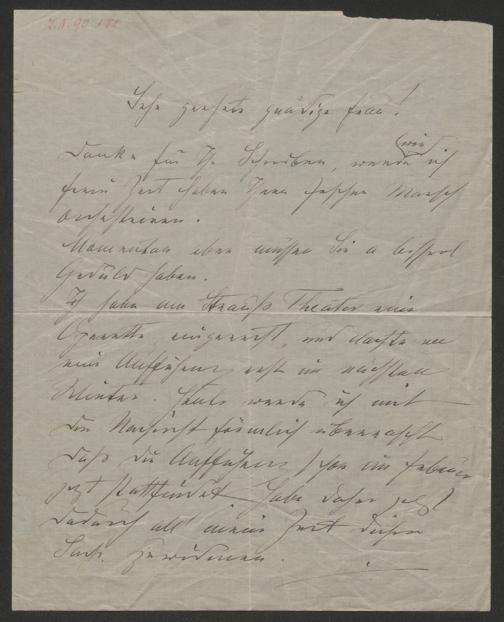 Z.N. 90.182
Sehr geehrte gnädige Frau!
Danke für Ihr Schreiben, werde wie ich
freie Zeit habe Ihren feschen Marsch
orchestrieren.
Momentan aber müssen Sie a bisserl
Geduld haben.
Ich habe am Strauß Theater eine
Operette eingereicht, und dachte an
eine Aufführung erst im nächsten
Winter. Heute werde ich mit
der Nachricht förmlich überrascht
daß die Aufführung schon im Februar
jetzt stattfindet habe daher jetzt
dadurch all' meine Zeit dieser
Sache zu widmen.